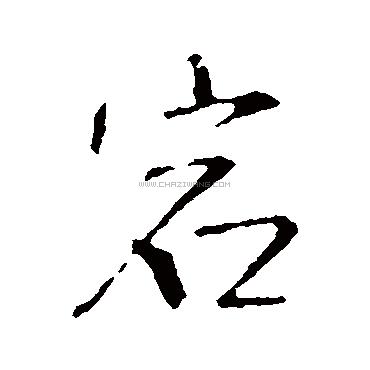 宕
WWW.CHAZIWANG.COM